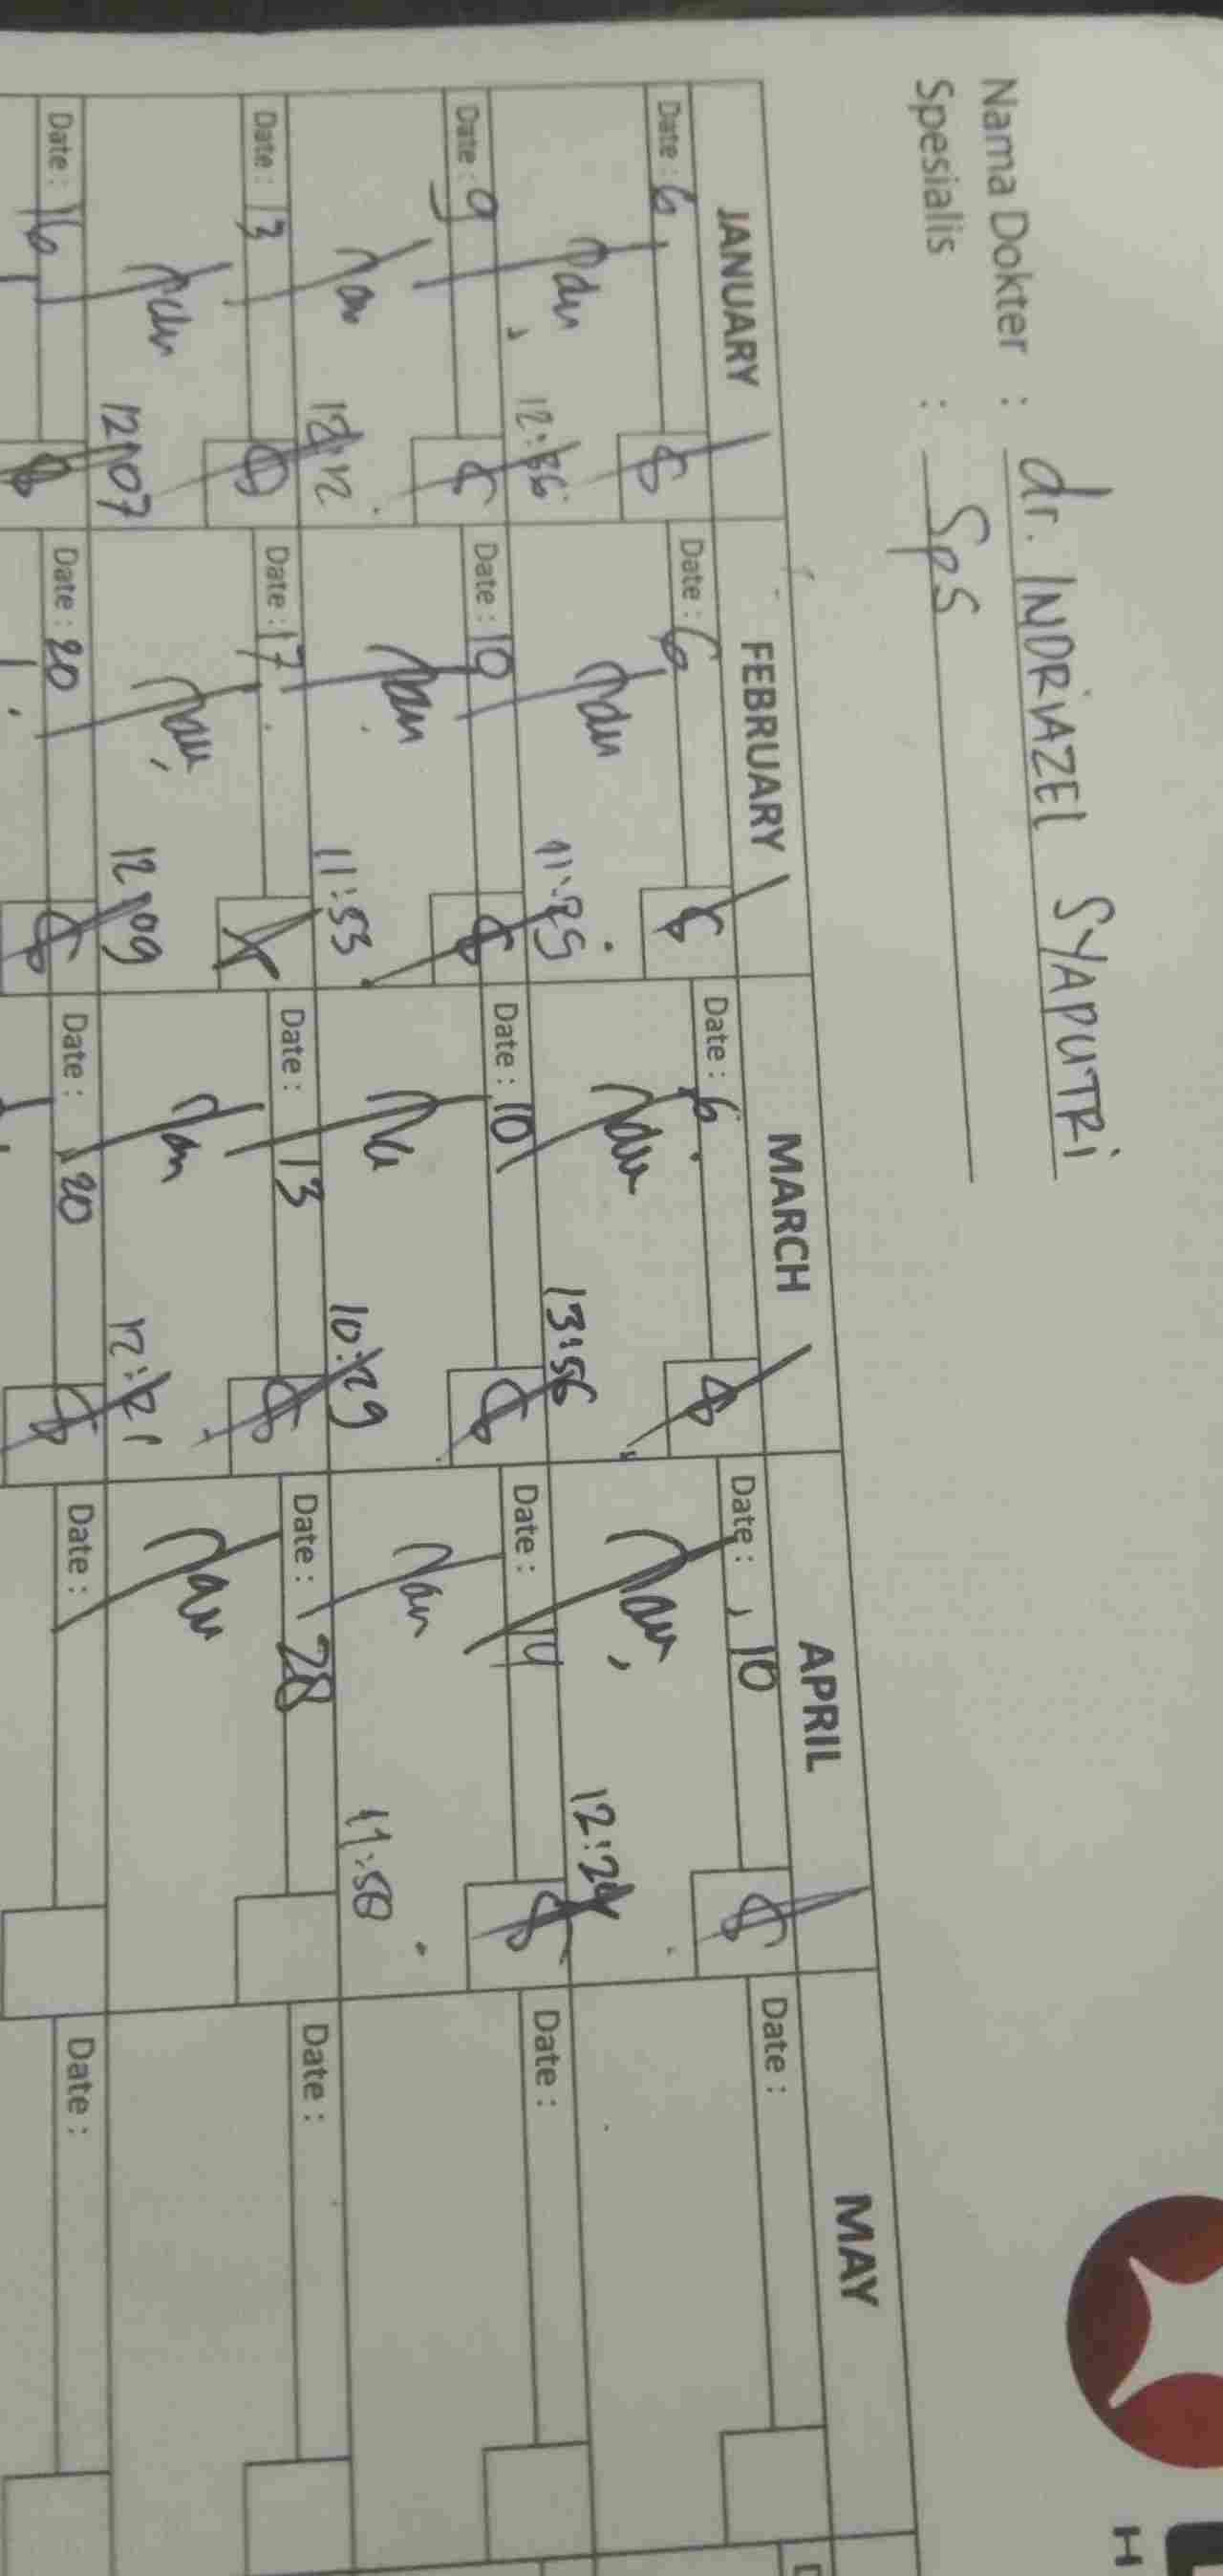 Nama Dokter : dr. INDRIAZEL SYAPUTRI
Spesialis : SpS
JANUARY FEBRUARY MARCH APRIL MAY
Date : 6 Date : 6 Date : 6 Date : 10 Date :
12:36 11:25 13:56 12:24
Date : 9 Date : 10 Date : 10 Date : 14 Date :
12:12 11:53 10:29 11:58
Date : 13 Date : 17 Date : 13 Date : 28 Date :
12:07 12:09 12:21
Date : 16 Date : 20 Date : 20 Date : Date :
H